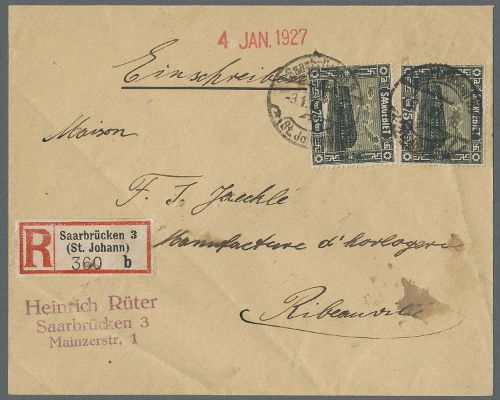 4 JAN. 1927
Einschreiben
SAARGEBIET
75
SAARGEBIET
75
Maison
F. J. Jaecklé
Manufacture d'horlogerie
Ribeauvillé
R
Saarbrücken 3
(St. Johann)
360 b
Heinrich Rüter
Saarbrücken 3
Mainzerstr. 1